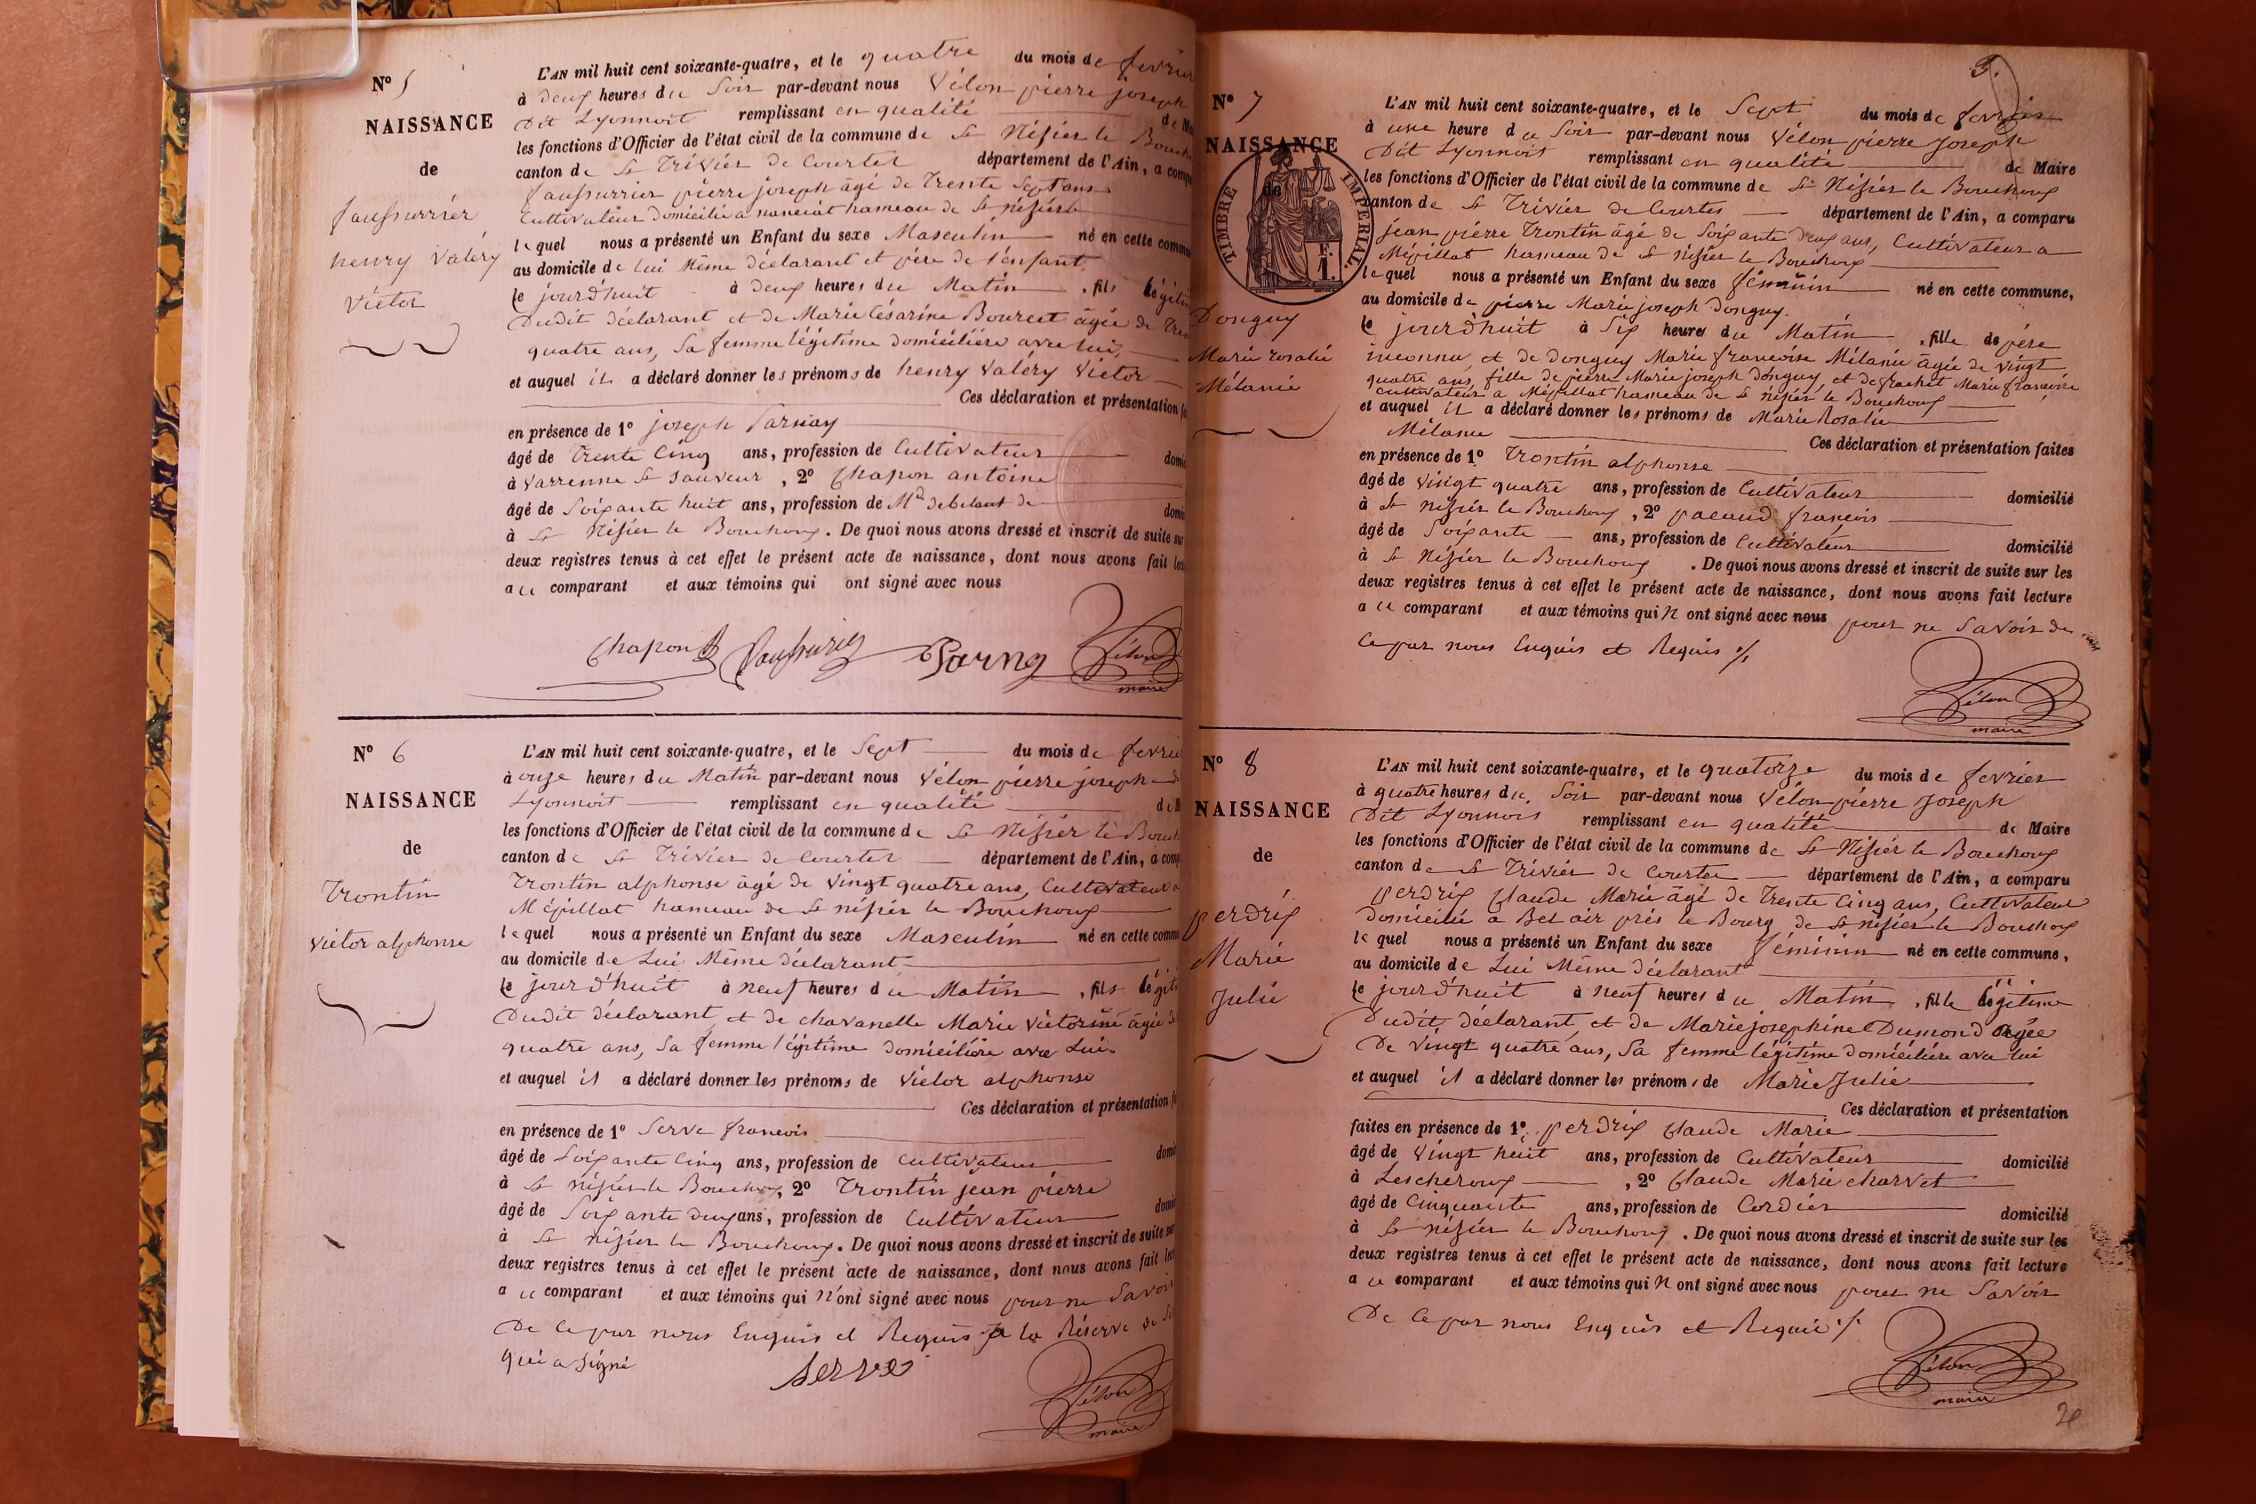 Nº 5
NAISSANCE
de
faussurrier
henry Valéry
Victor
L'AN mil huit cent soixante-quatre, et le quatre du mois de fevrier
à deux heures du Soir par-devant nous Vélon pierre joseph
Dit Lyonnoit remplissant en qualité de
les fonctions d'Officier de l'état civil de la commune de St Nizier le
canton de St Trivier de Courtes département de l'Ain, a
faussurrier pierre joseph âgé de Trente Sept ans
Cultivateur domicilié a hameau de St nizier
lequel nous a présenté un Enfant du sexe Masculin né en cette
au domicile de lui Même déclarant et père de l'enfant
le jourd'huit à deux heures du Matin, fils
Dudit déclarant et de Marie Césarine Bourcet âgée de
quatre ans, Sa femme légitime domiciliére avec lui
et auquel il a déclaré donner les prénoms de henry Valéry Victor
Ces déclaration et présentation
en présence de 1º joseph
âgé de Trente Cinq ans, profession de Cultivateur
à Varrenne St Sauveur, 2º Chapon antoine
âgé de Soixante huit ans, profession de Md debitant de
à St Nizier le Bouchoux. De quoi nous avons dressé et inscrit de suite
deux registres tenus à cet effet le présent acte de naissance, dont nous avons fait
au comparant et aux témoins qui ont signé avec nous
Chapon Parng Vélon
maire
Nº 6
NAISSANCE
de
Trontin
Victor alphonse
L'AN mil huit cent soixante-quatre, et le Sept du mois de
à onze heures du Matin par-devant nous Vélon pierre joseph
Lyonnoit remplissant en qualité
les fonctions d'Officier de l'état civil de la commune de St Nizier le
canton de St Trivier de Courtes département de l'Ain, a
Trontin alphonse âgé de Vingt quatre ans, Cultivateur a
Mépillat hameau de St nizier le Bouchoux
lequel nous a présenté un Enfant du sexe Masculin né en cette
au domicile de Lui Même déclarant
le jourd'huit à neuf heures du Matin, fils
Dudit déclarant, et de chavanelle Marie Victorine âgée de
quatre ans, Sa femme légitime domiciliére avec Lui
et auquel il a déclaré donner les prénoms de Victor alphonse
Ces déclaration et présentation
en présence de 1º Serve francois
âgé de Soixante Cinq ans, profession de Cultivateur
à St nizier le Bouchoux, 2º Trontin jean pierre
âgé de Soixante deux ans, profession de Cultivateur
à St nizier le Bouchoux. De quoi nous avons dressé et inscrit de suite
deux registres tenus à cet effet le présent acte de naissance, dont nous avons fait
au comparant et aux témoins qui n'ont signé avec nous pour ne Savoir
De Ce par nous Enquis et Requis a la Réserve de
qui a signé Serve
Vélon
maire
3.
Nº 7
NAISSANCE
de
TIMBRE IMPERIAL.
F.
1.
Donguy
Marie rosalie
Mélanie
L'AN mil huit cent soixante-quatre, et le Sept du mois de fevrier
à une heure du Soir par-devant nous Vélon pierre Joseph
Dit Lyonnoit remplissant en qualité de Maire
les fonctions d'Officier de l'état civil de la commune de St Nizier le Bouchoux
canton de St Trivier de Courtes département de l'Ain, a comparu
jean pierre Trontin âgé de Soixante deux ans, Cultivateur a
Mépillat hameau de St nizier le Bouchoux
lequel nous a présenté un Enfant du sexe féminin né en cette commune,
au domicile de pierre Marie joseph Donguy.
le jourd'huit à Six heures du Matin, fille de père
inconnu et de Donguy Marie francoise Mélanie âgée de Vingt
quatre ans, fille de pierre Marie joseph donguy et de frachet Marie francoise
Cultivateur a Mépillat hameau de St nizier le Bouchoux
et auquel il a déclaré donner les prénoms de Marie Rosalie
Mélanie Ces déclaration et présentation faites
en présence de 1º Trontin alphonse
âgé de Vingt quatre ans, profession de Cultivateur domicilié
à St nizier le Bouchoux, 2º pacaud françois
âgé de Soixante ans, profession de Cultivateur domicilié
à St Nizier le Bouchoux. De quoi nous avons dressé et inscrit de suite sur les
deux registres tenus à cet effet le présent acte de naissance, dont nous avons fait lecture
au comparant et aux témoins qui n ont signé avec nous pour ne Savoir de
Ce par nous Enquis et Requis ./.
Vélon
maire
Nº 8
NAISSANCE
de
perdrix
Marie
Julie
L'AN mil huit cent soixante-quatre, et le quatorze du mois de fevrier
à quatre heures du Soir par-devant nous Vélon pierre Joseph
Dit Lyonnois remplissant en qualité de Maire
les fonctions d'Officier de l'état civil de la commune de St Nizier le Bouchoux
canton de St Trivier de Courtes département de l'Ain, a comparu
perdrix Claude Marie âgé de Trente Cinq ans, Cultivateur
domicilié a Bel air près le Bourg de St nizier le Bouchoux
lequel nous a présenté un Enfant du sexe féminin né en cette commune,
au domicile de Lui Même déclarant
le jourd'huit à neuf heures du Matin, fille légitime
Dudit déclarant, et de Marie josephine Dumond âgée
De Vingt quatre ans, Sa femme légitime domiciliére avec lui
et auquel il a déclaré donner les prénoms de Marie Julie
Ces déclaration et présentation
faites en présence de 1º perdrix Claude Marie
âgé de Vingt huit ans, profession de Cultivateur domicilié
à Lescheroux, 2º Claude Marie charvet
âgé de Cinquante ans, profession de Cordier domicilié
à St nizier le Bouchoux. De quoi nous avons dressé et inscrit de suite sur les
deux registres tenus à cet effet le présent acte de naissance, dont nous avons fait lecture
au comparant et aux témoins qui n ont signé avec nous pour ne Savoir
De Ce par nous Enquis et Requis ./.
Vélon
maire